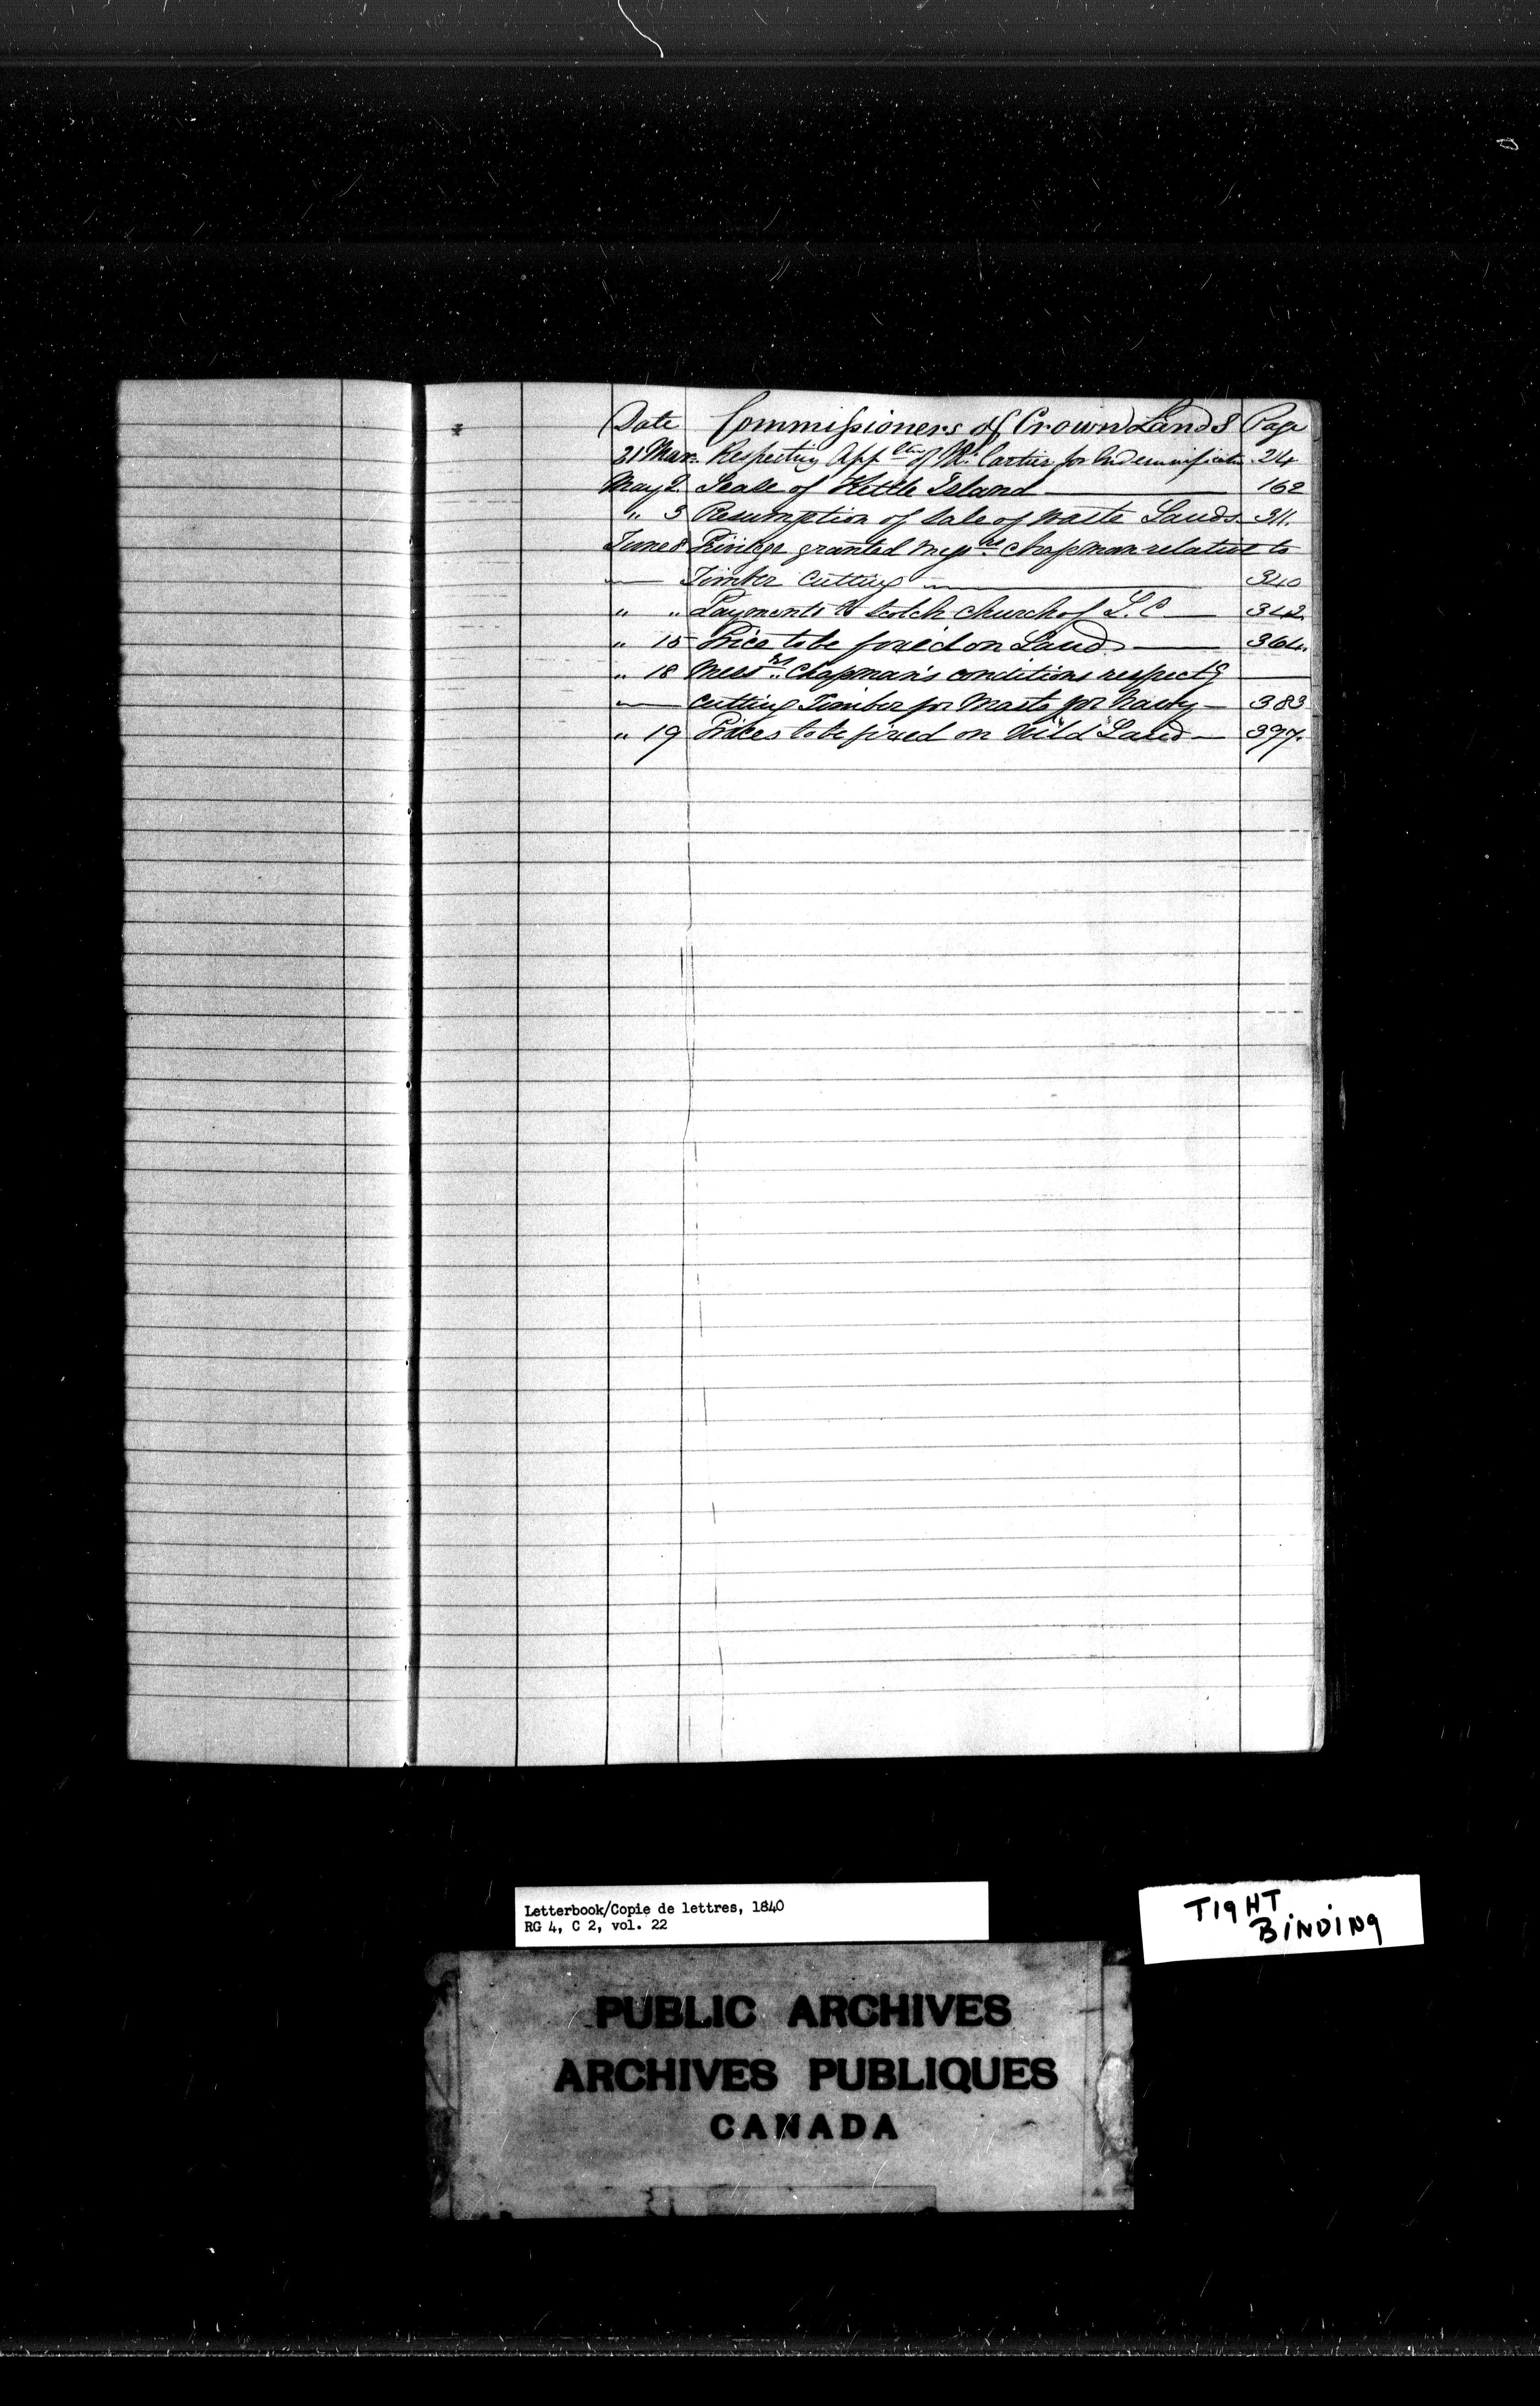 Date Commissioners of Crown Lands Page
21 Mar. Respecting App ctn of Mr. Cartier for Indemnification 24
May 2. Lease of Kettle Island 162
" 3 Resumption of Sale of Waste Lands 311.
June 8 Privilege granted Messrs. Chapman relative to
Timber Cutting 340
" " Payments to Scotch Church of L. C 342.
" 15 Price to be fixed on Land 364.
" 18 Messrs. Chapman's conditions respectg
Cutting Timber for Masts for Navy 383
" 19 Prices to be fixed on Wild Land 397.
Letterbook/Copie de lettres, 1840
RG 4, C 2, vol. 22
TIGHT
BINDING
PUBLIC ARCHIVES
ARCHIVES PUBLIQUES
CANADA